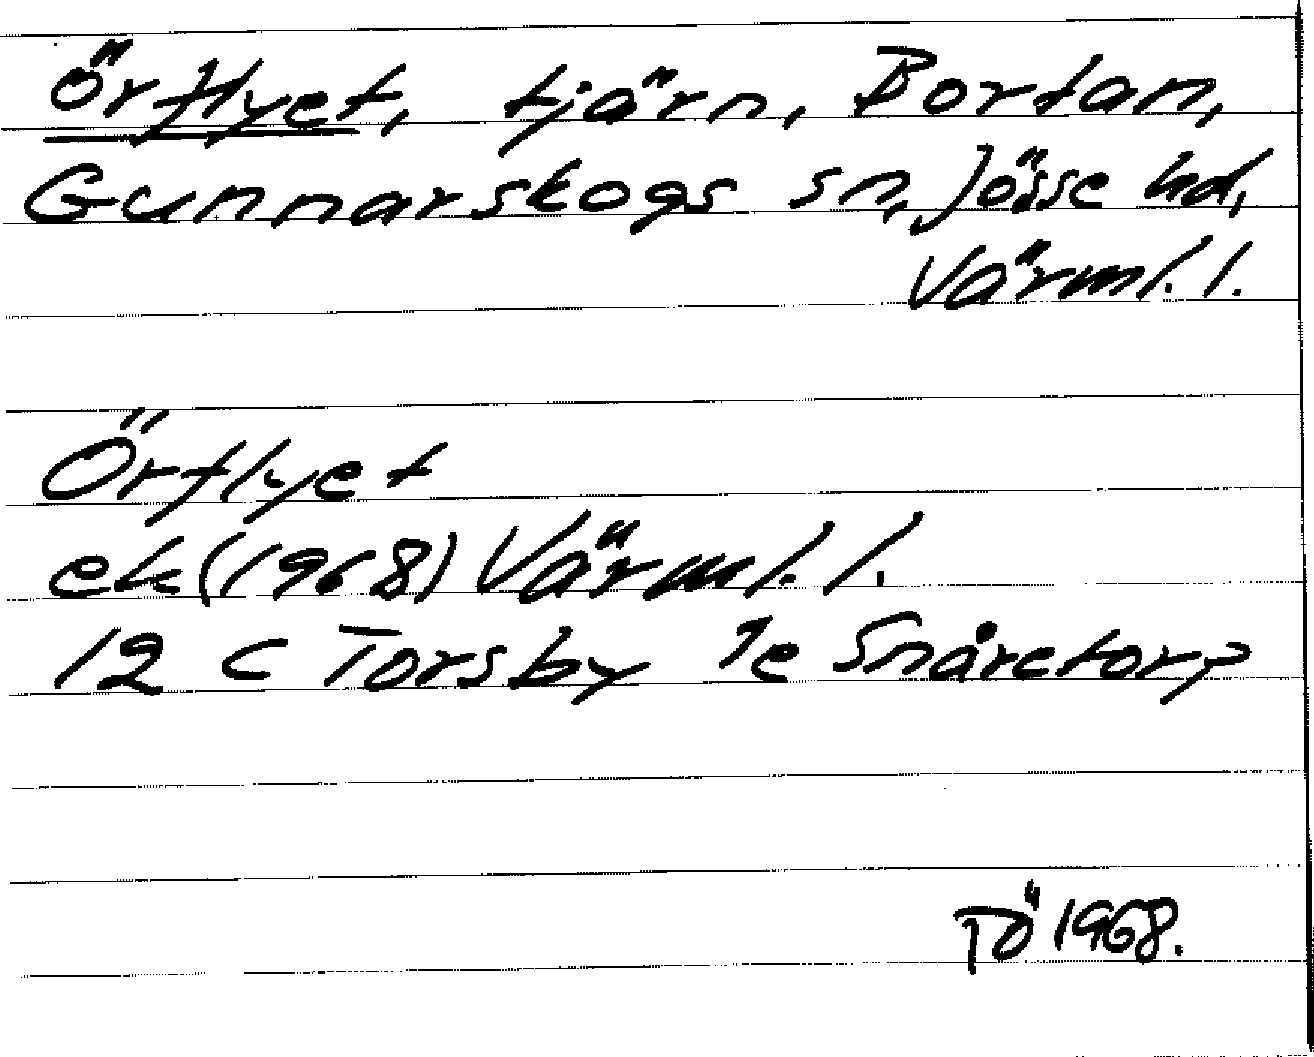 Örflyet, tjärn, Bortan,
Gunnarskogs sn, Jösse hd,
Värml. l.
Örflyet
ek (1968) Värml. l.
12 C Torsby 1e Snåretorp
PÖ 1968.